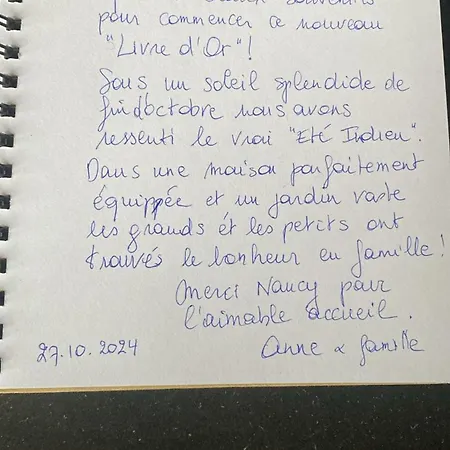 pour commencer ce nouveau
"Livre d'Or"!
Sous un soleil splendide de
fin d'octobre nous avons
ressenti le vrai "Eté Indien".
Dans une maison parfaitement
équippée et un jardin vaste
les grands et les petits ont
trouvés le bonheur en famille!
Merci Nancy pour
l'aimable accueil.
27.10.2024 Anne & famille